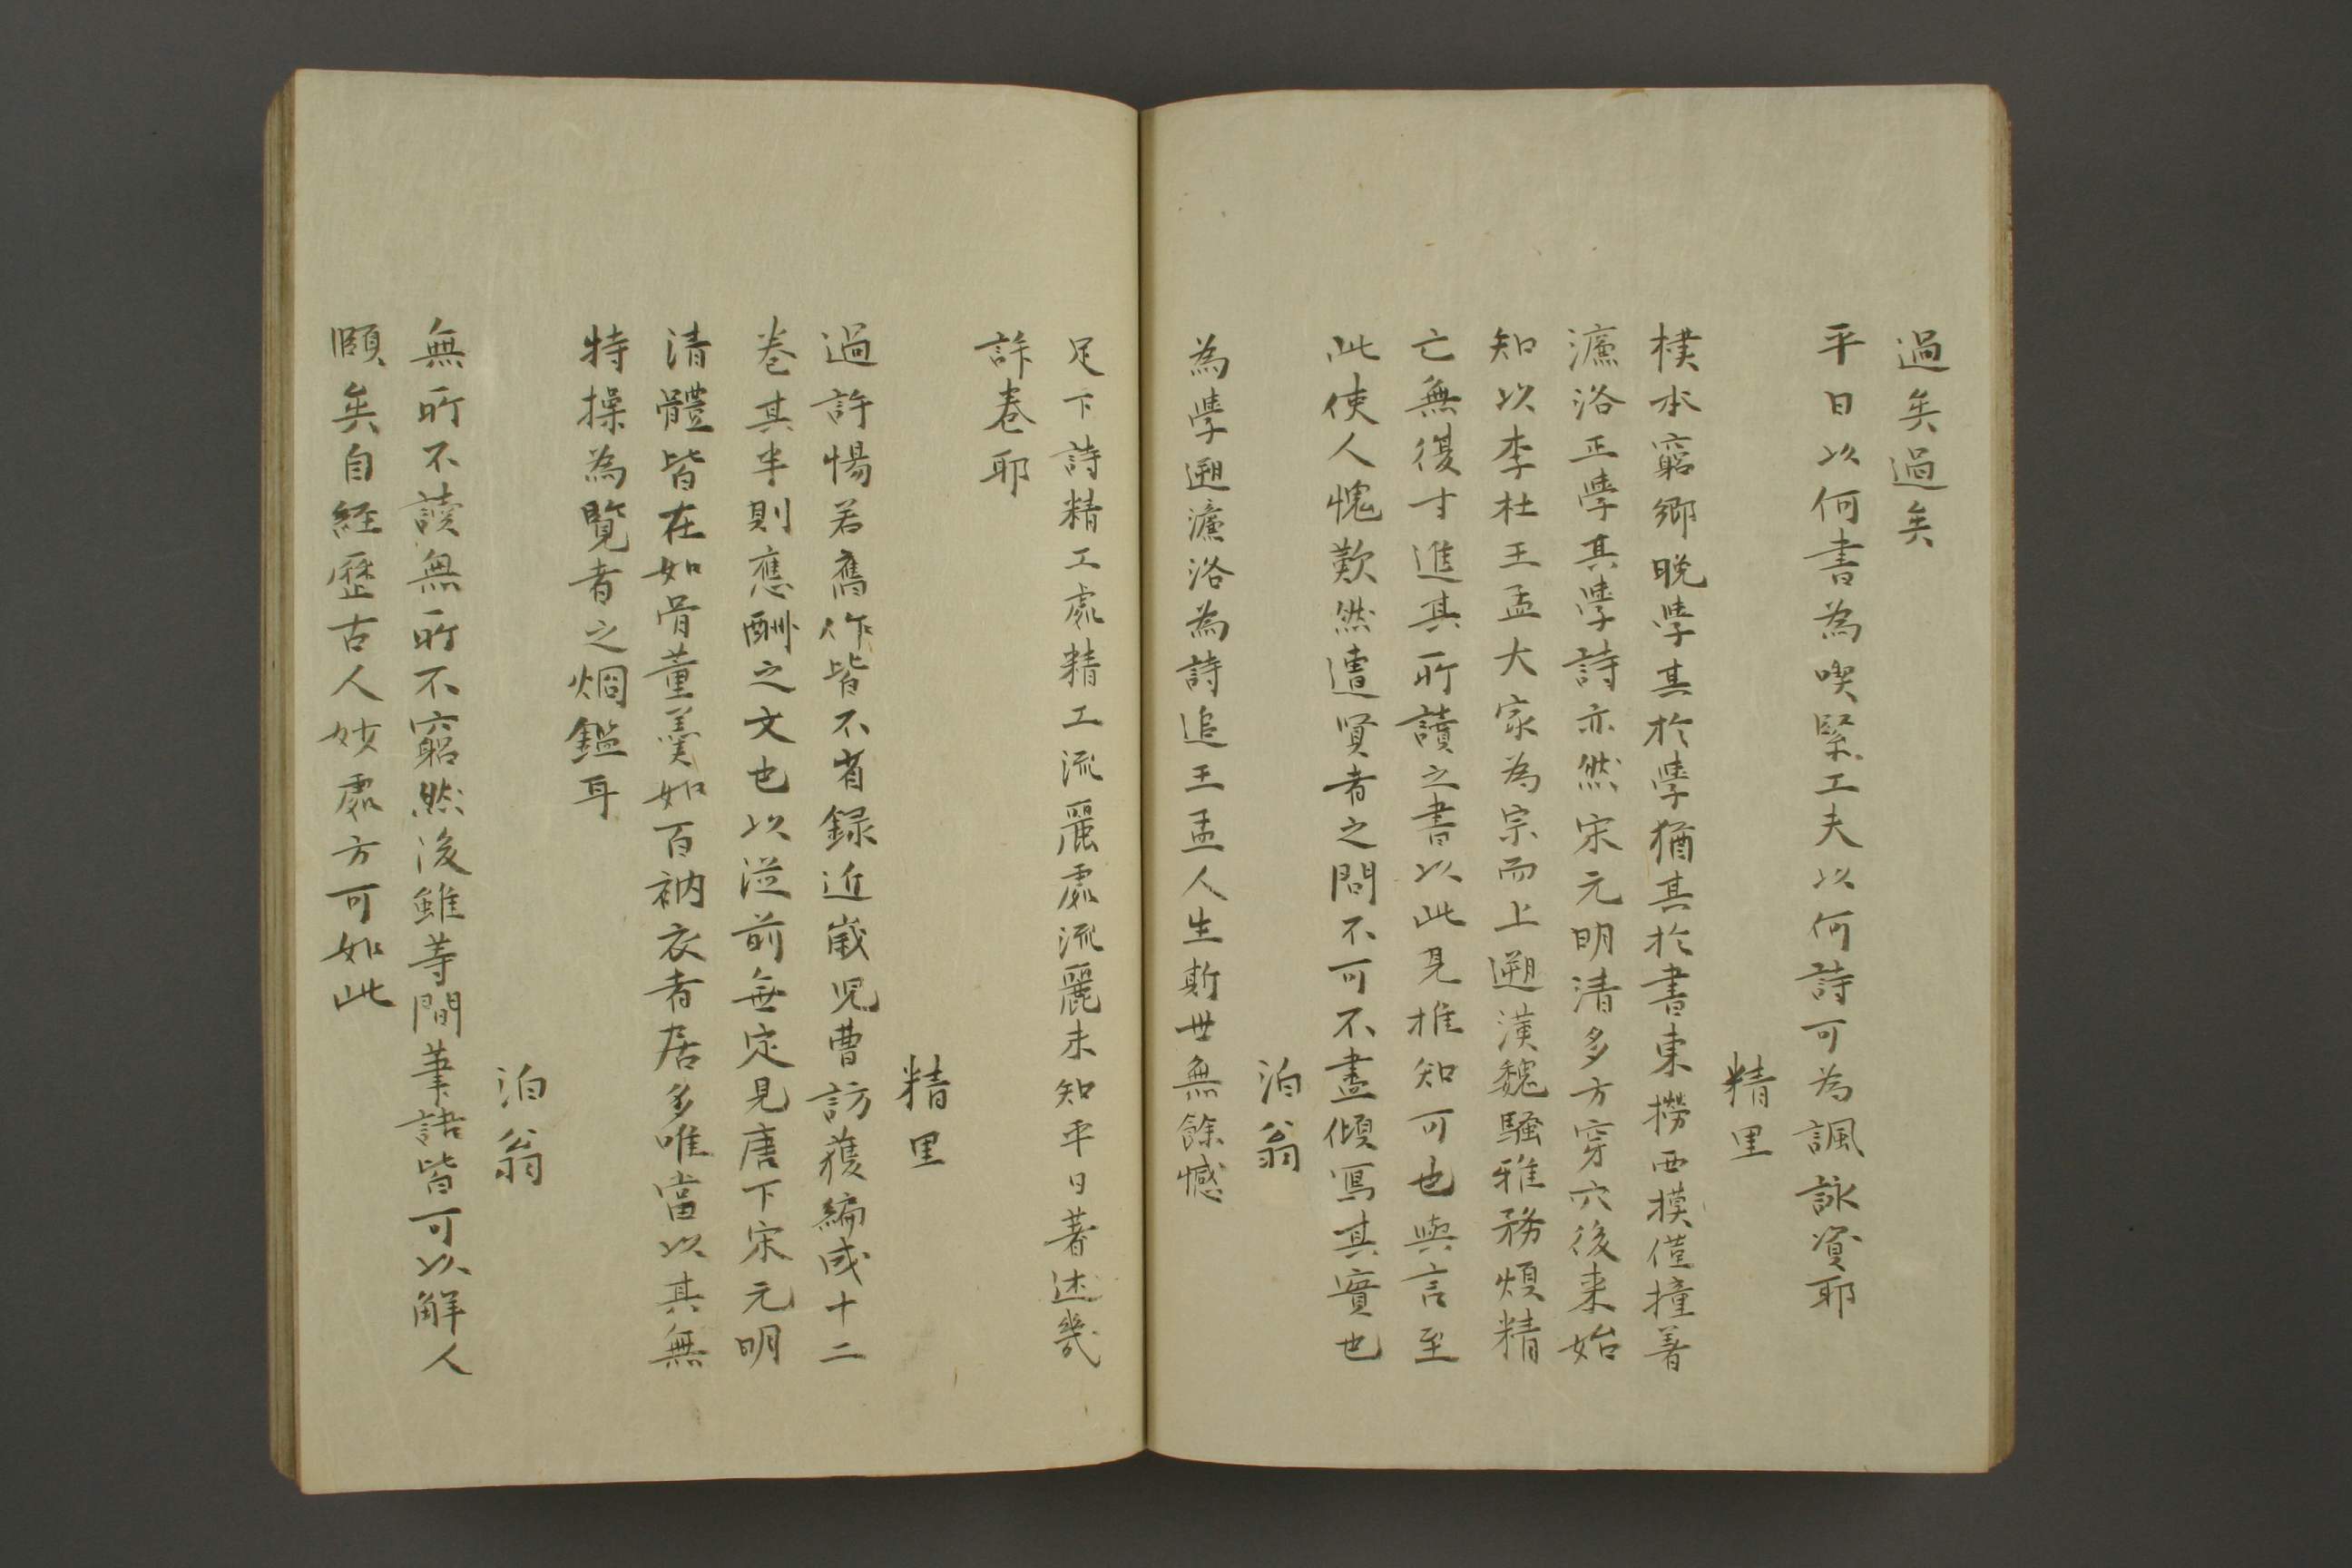 過矣過矣
平日以何書為喫緊工夫以何詩可為諷詠資耶
精里
樸本窮鄉晚學其於學猶其於書東撈西摸僅撞著
濂洛正學其學詩亦然宋元明清多方穿穴後来始
知以李杜王孟大家為宗而上遡漢魏騷雅務煩精
亡無復寸進其所讀之書以此見推知可也與言至
此使人愧歎然遭賢者之問不可不盡傾寫其實也
泊翁
為學遡濂洛為詩追王孟人生斯世無餘憾
足下詩精工處精工流麗處流麗未知平日著述幾
許卷耶
精里
過許惕若舊作皆不省録近歲児曹訪獲編成十二
卷其半則應酬之文也以從前無定見唐下宋元明
清體皆在如骨董羹如百衲衣者居多唯當以其無
特操為覽者之烱鑑耳
泊翁
無所不讀無所不窮然後雖等間筆語皆可以解人
頤矣自経歷古人妙處方可如此